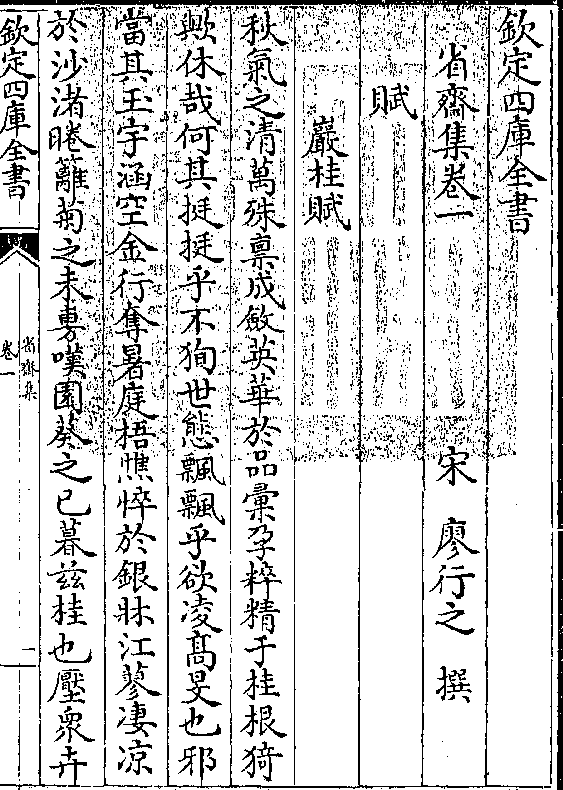 欽定四庫全書
省齋集卷一
宋 廖行之 撰
賦
巖桂賦
秋氣之清萬殊稟成斂英華於品彙孕粹精于桂根猗
歟休哉何其挺挺乎不狥世態飄飄乎欲凌髙旻也邪
當其玉宇涵空金行奪暑庭梧憔悴於銀牀江蓼凄凉
於沙渚睠籬菊之未旉嘆園葵之已暮兹桂也壓衆卉
欽定四庫全書
省齋集
卷一
一